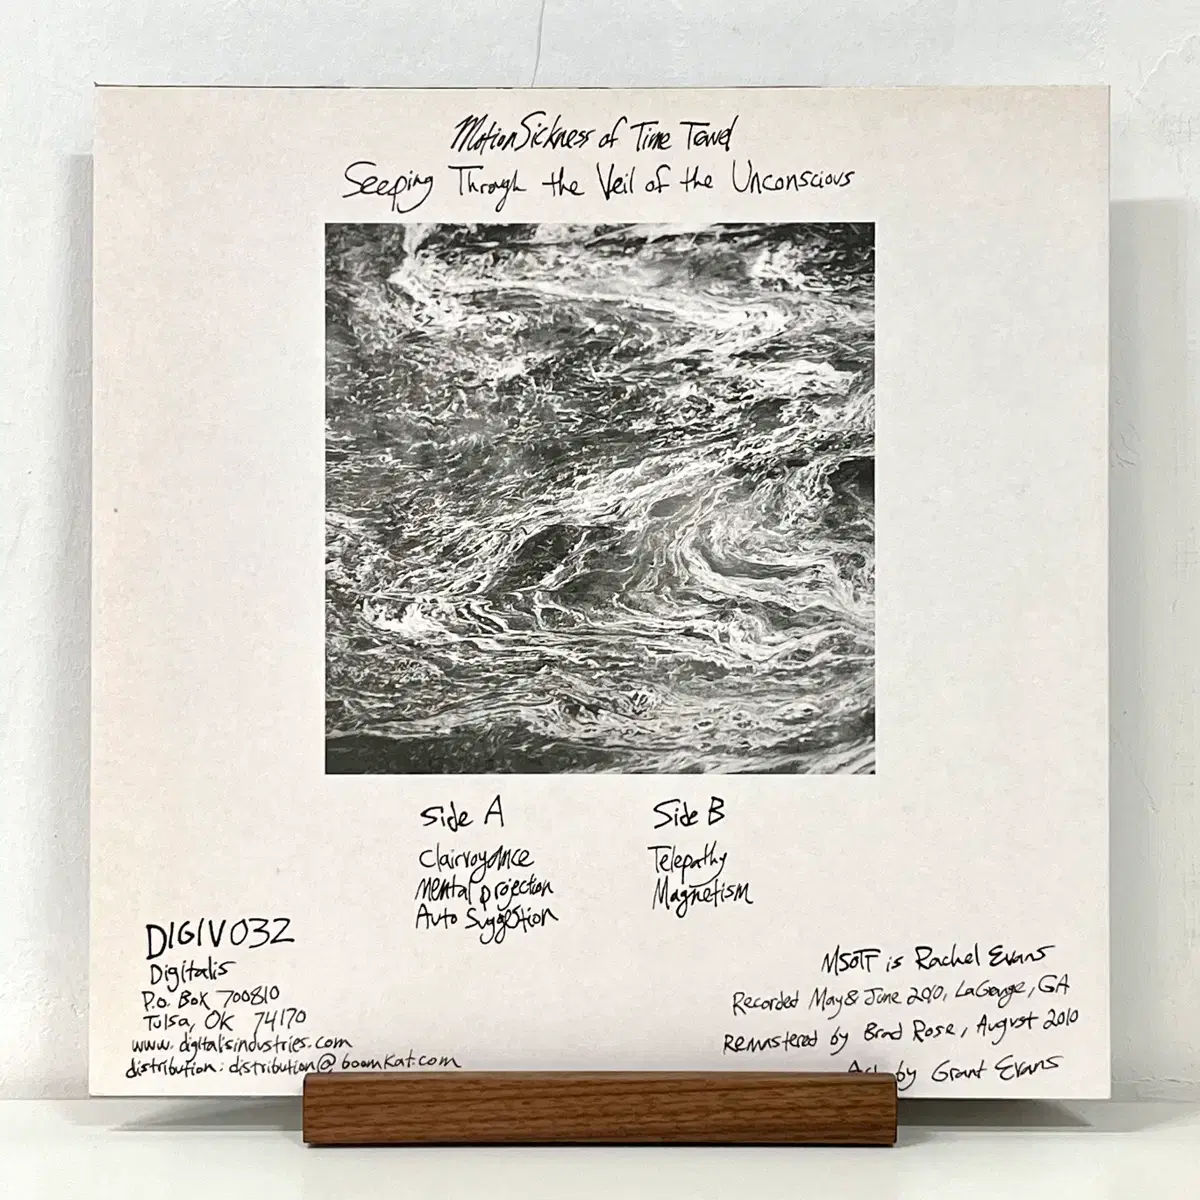 Motion Sickness of Time Travel
Seeping Through the Veil of the Unconscious
Side A
Clairvoyance
Mental projection
Auto Suggestion
Side B
Telepathy
Magnetism
DIGIV032
Digitalis
P.O. Box 700810
Tulsa, OK 74170
www.digitalisindustries.com
distribution: distribution@boomkat.com
MSOTT is Rachel Evans
Recorded May & June 2010, LaGrange, GA
Remastered by Brad Rose, August 2010
Art by Grant Evans